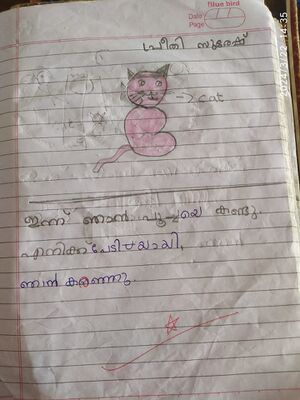 Blue bird
Date
Page
പ്രീതി സുരേഷ്
→ cat
ഇന്ന് ഞാൻ പൂച്ചയെ കണ്ടു.
എനിക്ക് പേടിയായി.
ഞാൻ കരഞ്ഞു.
2024/12/22 14:35